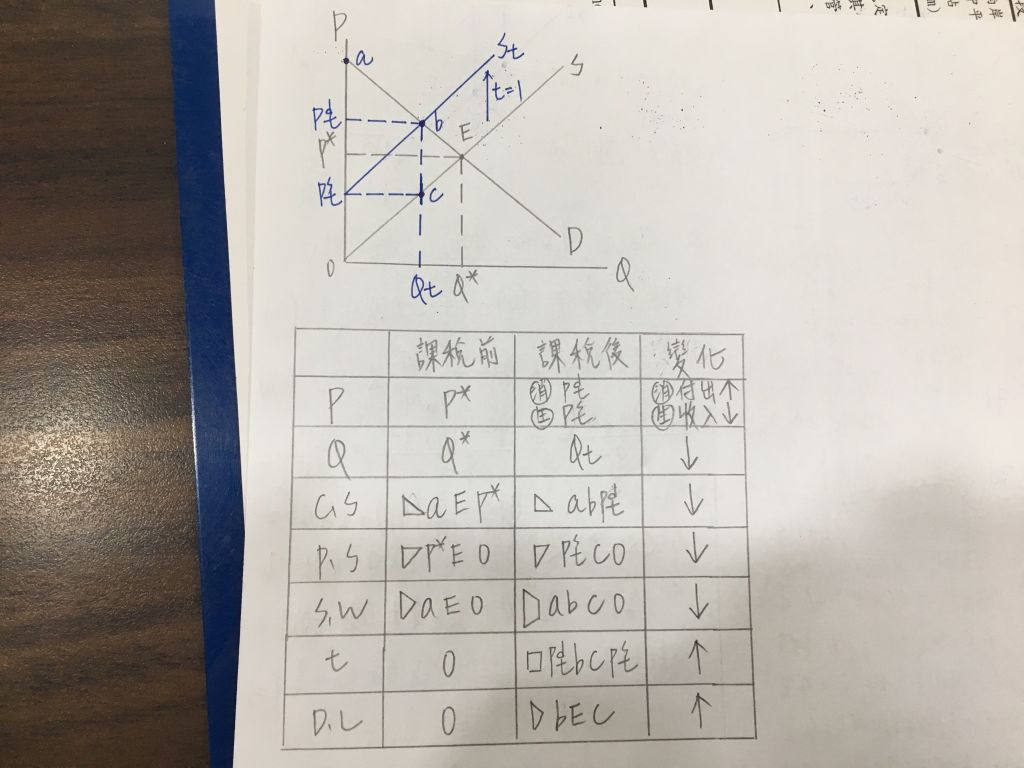 P
a
St
S
t=1
Pt
b
E
P*
Pt
c
D
0
Qt
Q*
Q
課稅前 課稅後 變化
P P* 消 Pt 消付出↑
生 Pt 生收入↓
Q Q* Qt ↓
C.S △aEP* △abPt ↓
P.S ▷P*E0 ▷PtC0 ↓
S.W ▷aE0 abC0 ↓
t 0 □PtbCPt ↑
D.L 0 ▷bEC ↑